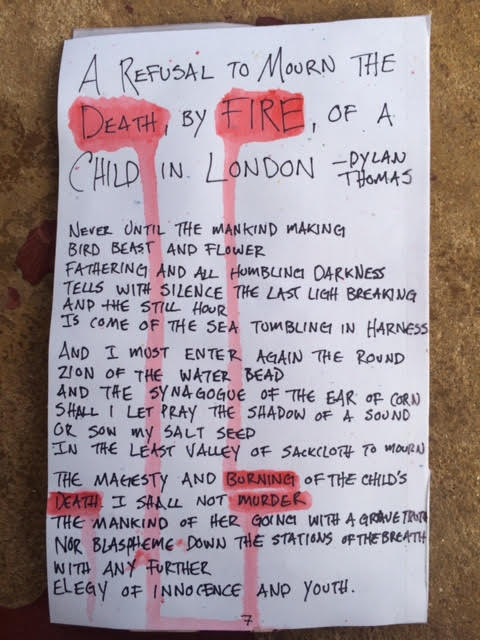 A REFUSAL TO MOURN THE
DEATH, BY FIRE, OF A
CHILD IN LONDON -DYLAN
THOMAS
NEVER UNTIL THE MANKIND MAKING
BIRD BEAST AND FLOWER
FATHERING AND ALL HUMBLING DARKNESS
TELLS WITH SILENCE THE LAST LIGH BREAKING
AND THE STILL HOUR
IS COME OF THE SEA TUMBLING IN HARNESS
AND I MUST ENTER AGAIN THE ROUND
ZION OF THE WATER BEAD
AND THE SYNAGOGUE OF THE EAR OF CORN
SHALL I LET PRAY THE SHADOW OF A SOUND
OR SOW MY SALT SEED
IN THE LEAST VALLEY OF SACKCLOTH TO MOURN
THE MAGESTY AND BURNING OF THE CHILD'S
DEATH. I SHALL NOT MURDER
THE MANKIND OF HER GOING WITH A GRAVE TRUTH
NOR BLASPHEME DOWN THE STATIONS OF THE BREATH
WITH ANY FURTHER
ELEGY OF INNOCENCE AND YOUTH.
7